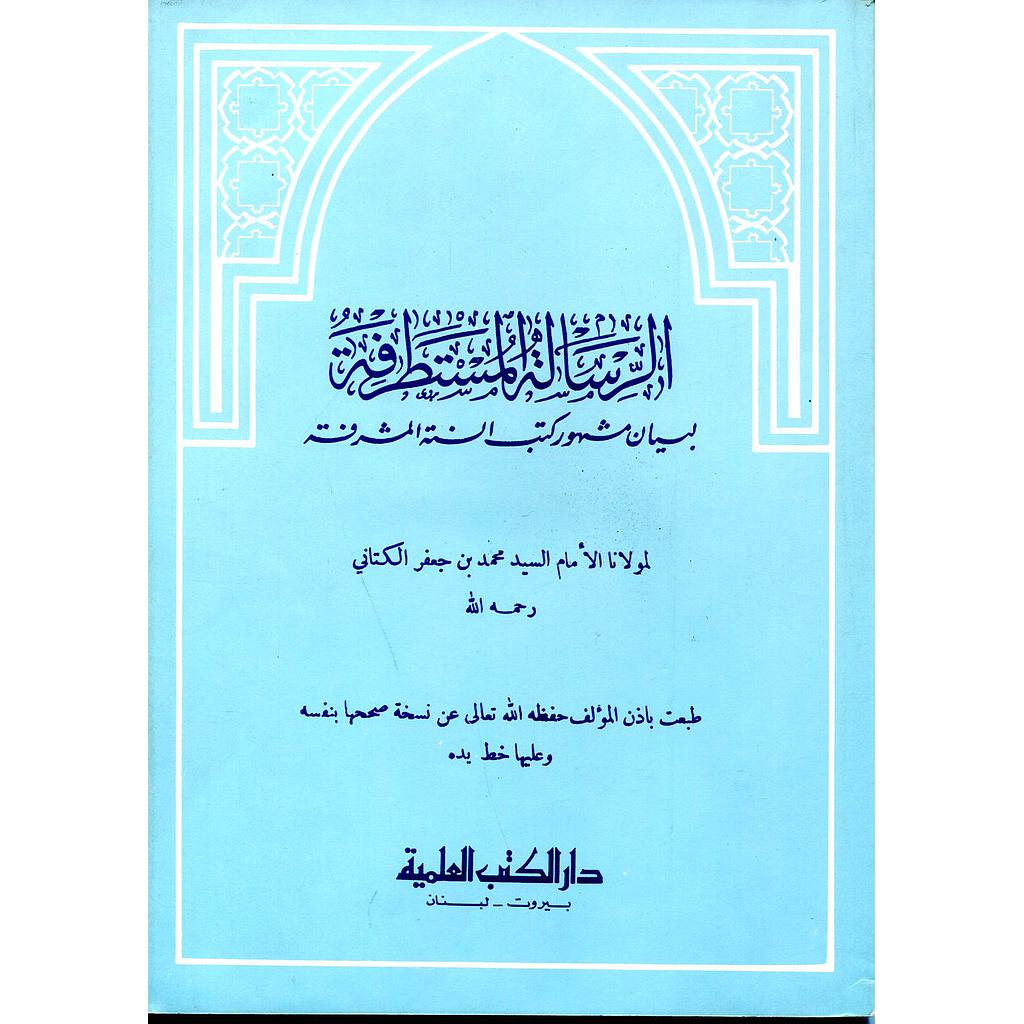 الرِّسَالَةُ المُسْتَطْرِفَةُ
لبيان مشهور كتب السنة المشرفة
لمولانا الأمام السيد محمد بن جعفر الكتاني
رحمه الله
طبعت باذن المؤلف حفظه الله تعالى عن نسخة صححها بنفسه
وعليها خط يده
دار الكتب العلمية
بيروت - لبنان